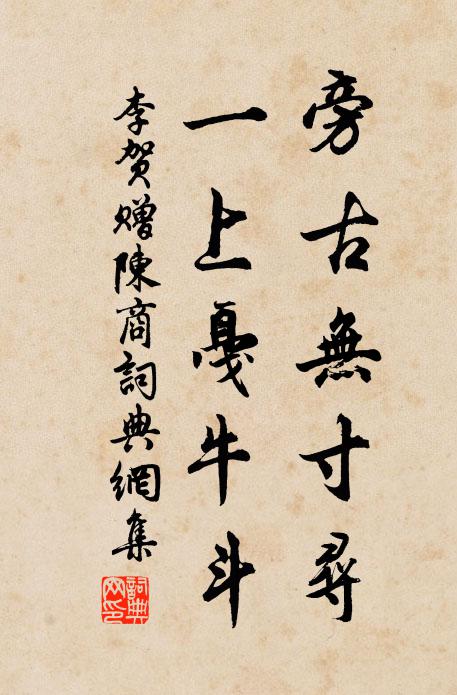 旁古無寸尋
一上戛牛斗
李賀贈陳商詞典網集
詞典網印